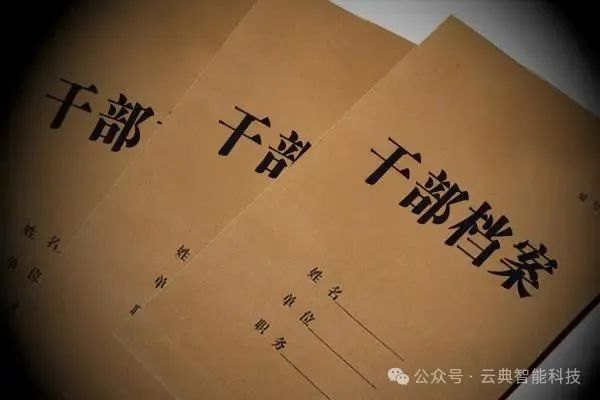 干部
姓名
单位
干部
姓
单
干部档案
姓名
单位
职务
公众号·云典智能科技